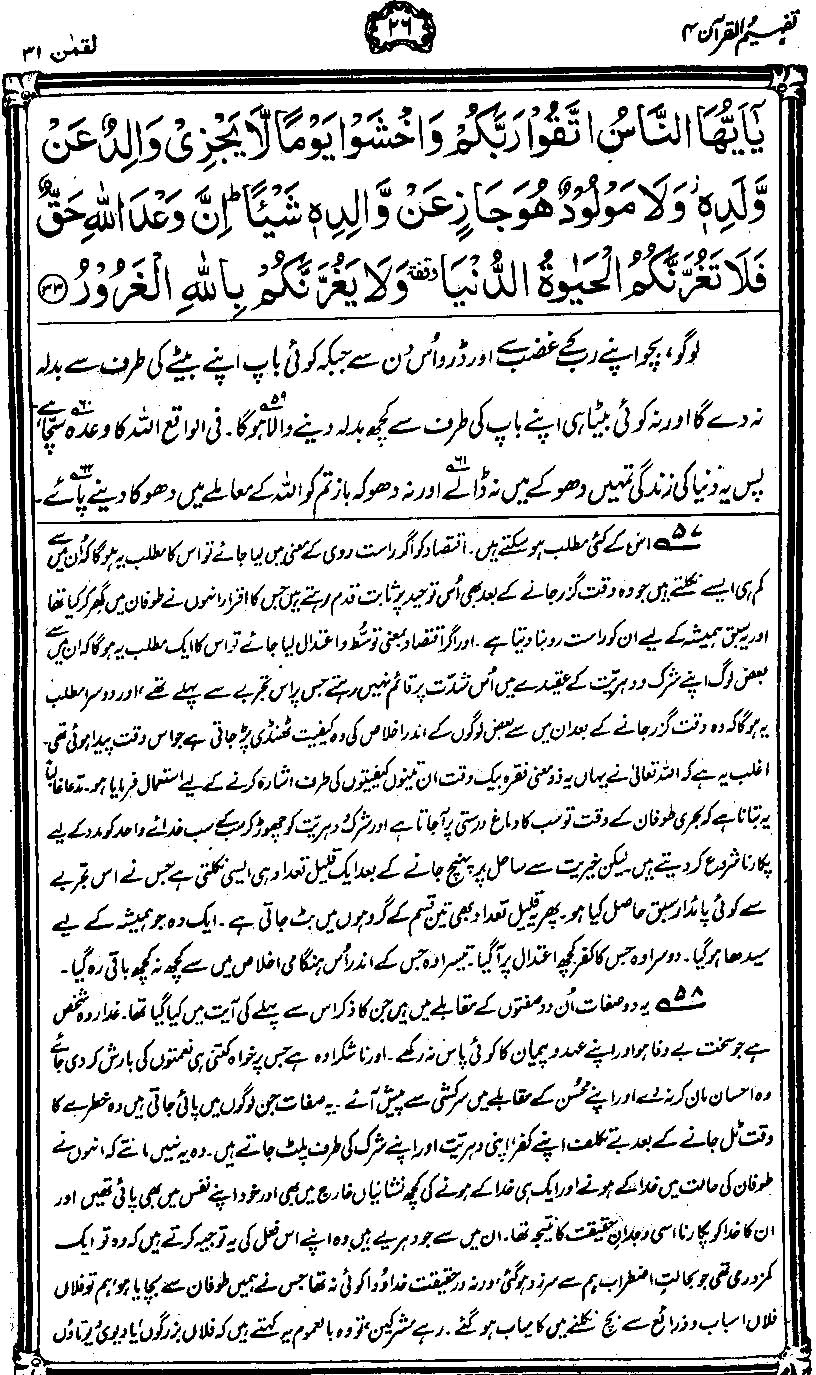 تفہیم القرآن ۴
۲۶
لقمٰن ۳۱
يٰۤاَيُّهَا النَّاسُ اتَّقُوْا رَبَّكُمْ وَاخْشَوْا يَوْمًا لَّا يَجْزِىْ وَالِدٌ عَنْ
وَّلَدِهٖ ۫ وَلَا مَوْلُوْدٌ هُوَ جَازٍ عَنْ وَّالِدِهٖ شَيْـًٔا ؕ اِنَّ وَعْدَ اللّٰهِ حَقٌّ
فَلَا تَغُرَّنَّكُمُ الْحَيٰوةُ الدُّنْيَا وقفۃ وَلَا يَغُرَّنَّكُمْ بِاللّٰهِ الْغَرُوْرُ ﴿۳۳﴾
لوگو، بچو اپنے رب کے غضب سے اور ڈرو اُس دن سے جبکہ کوئی باپ اپنے بیٹے کی طرف سے بدلہ
نہ دے گا اور نہ کوئی بیٹا ہی اپنے باپ کی طرف سے کچھ بدلہ دینے والا ہوگا۵۹۔ فی الواقع اللہ کا وعدہ سچّا ہے۶۰
پس یہ دُنیا کی زندگی تمہیں دھوکے میں نہ ڈالے۶۱ اور نہ دھوکہ باز تم کو اللہ کے معاملے میں دھوکا دینے پائے۶۲۔
۵۷ اس کے کئی مطلب ہو سکتے ہیں۔ اقتصاد کو اگر راست روی کے معنی میں لیا جائے تو اس کا مطلب یہ ہوگا کہ اُن میں سے
کم ہی ایسے نکلتے ہیں جو وہ وقت گزر جانے کے بعد بھی اُس توحید پر ثابت قدم رہتے ہیں جس کا اقرار انہوں نے طوفان میں گھر کر کیا تھا
اور یہ سبق ہمیشہ کے لیے ان کو راست رو بنا دیتا ہے۔ اور اگر اقتصاد بمعنی توسُّط و اعتدال لیا جائے تو اس کا ایک مطلب یہ ہوگا کہ ان میں سے
بعض لوگ اپنے شرک و دہریّت کے عقیدے میں اُس شدّت پر قائم نہیں رہتے جس پر اس تجربے سے پہلے تھے، اور دوسرا مطلب
یہ ہوگا کہ وہ وقت گزر جانے کے بعد ان میں سے بعض لوگوں کے اندر اخلاص کی وہ کیفیت ٹھنڈی پڑ جاتی ہے جو اس وقت پیدا ہوئی تھی۔
اغلب یہ ہے کہ اللہ تعالیٰ نے یہاں یہ ذومعنی فقرہ بیک وقت ان تینوں کیفیتوں کی طرف اشارہ کرنے کے لیے استعمال فرمایا ہو۔ مدّعا غالباً
یہ بتانا ہے کہ بحری طوفان کے وقت تو سب کا دماغ درستی پر آجاتا ہے اور شرک و دہریّت کو چھوڑ کر سب کے سب خدائے واحد کو مدد کے لیے
پکارنا شروع کر دیتے ہیں۔ لیکن خیریت سے ساحل پر پہنچ جانے کے بعد ایک قلیل تعداد ہی ایسی نکلتی ہے جس نے اس تجربے
سے کوئی پائدار سبق حاصل کیا ہو۔ پھر یہ قلیل تعداد بھی تین قسم کے گروہوں میں بٹ جاتی ہے۔ ایک وہ جو ہمیشہ کے لیے
سیدھا ہوگیا۔ دوسرا وہ جس کا کفر کچھ اعتدال پر آگیا۔ تیسرا وہ جس کے اندر اُس ہنگامی اخلاص میں سے کچھ نہ کچھ باقی رہ گیا۔
۵۸ یہ دو صفات اُن دو صفتوں کے مقابلے میں ہیں جن کا ذکر اس سے پہلے کی آیت میں کیا گیا تھا۔ غدار وہ شخص
ہے جو سخت بے وفا ہو اور اپنے عہد و پیمان کا کوئی پاس نہ رکھے۔ اور ناشکرا وہ ہے جس پر خواہ کتنی ہی نعمتوں کی بارش کر دی جائے
وہ احسان مان کر نہ دے اور اپنے محسُن کے مقابلے میں سرکشی سے پیش آئے۔ یہ صفات جن لوگوں میں پائی جاتی ہیں وہ خطرے کا
وقت ٹل جانے کے بعد بے تکلف اپنے کفر، اپنی دہریّت اور اپنے شرک کی طرف پلٹ جاتے ہیں۔ وہ یہ نہیں مانتے کہ انہوں نے
طوفان کی حالت میں خدا کے ہونے اور ایک ہی خدا کے ہونے کی کچھ نشانیاں خارج میں بھی اور خود اپنے نفس میں بھی پائی تھیں اور
ان کا خدا کو پکارنا اسی وجدانِ حقیقت کا نتیجہ تھا۔ ان میں سے جو دہریے ہیں وہ اپنے اس فعل کی یہ توجیہ کرتے ہیں کہ وہ تو ایک
کمزوری تھی جو بحالتِ اضطراب ہم سے سرزد ہوگئی، ورنہ درحقیقت خدا وُدا کوئی نہ تھا جس نے ہمیں طوفان سے بچایا ہو، ہم تو فلاں
فلاں اسباب و ذرائع سے بچ نکلنے میں کامیاب ہوگئے۔ رہے مشرکین، تو وہ بالعموم یہ کہتے ہیں کہ فلاں بزرگوں، یا دیوی دیوتاؤں